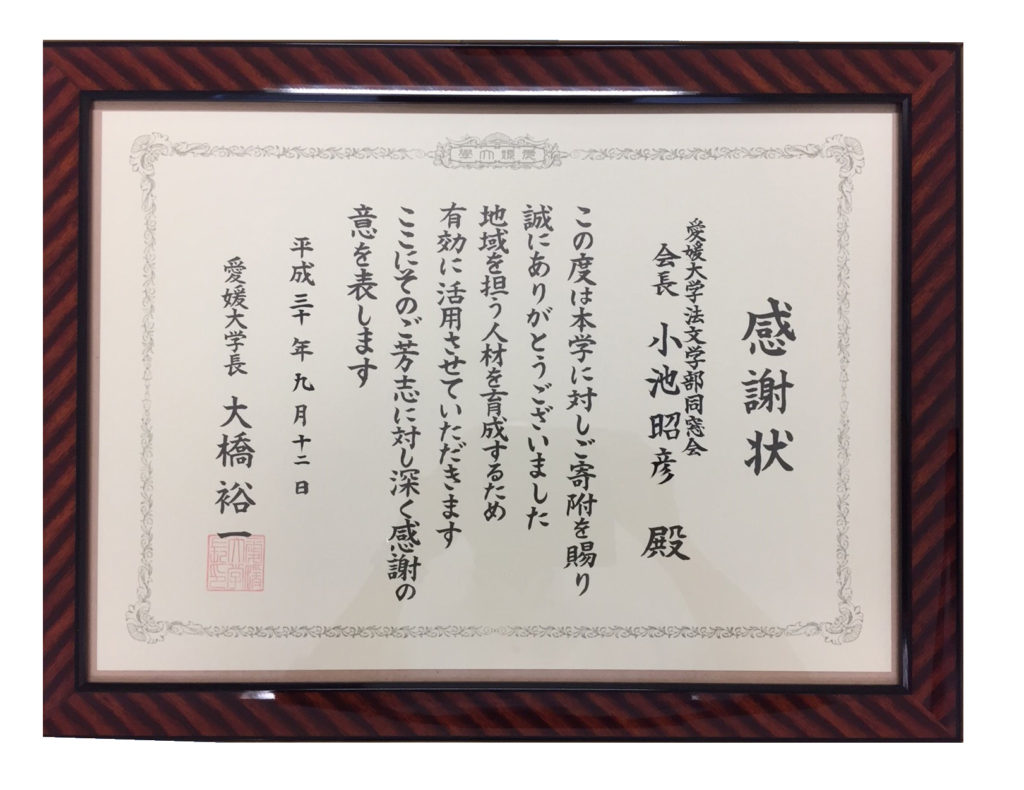 愛媛大學
感謝状
愛媛大学法文学部同窓会
会長 小池昭彦 殿
この度は本学に対しご寄附を賜り
誠にありがとうございました
地域を担う人材を育成するため
有効に活用させていただきます
ここにそのご芳志に対し深く感謝の
意を表します
平成三十年九月十二日
愛媛大学長 大橋裕一